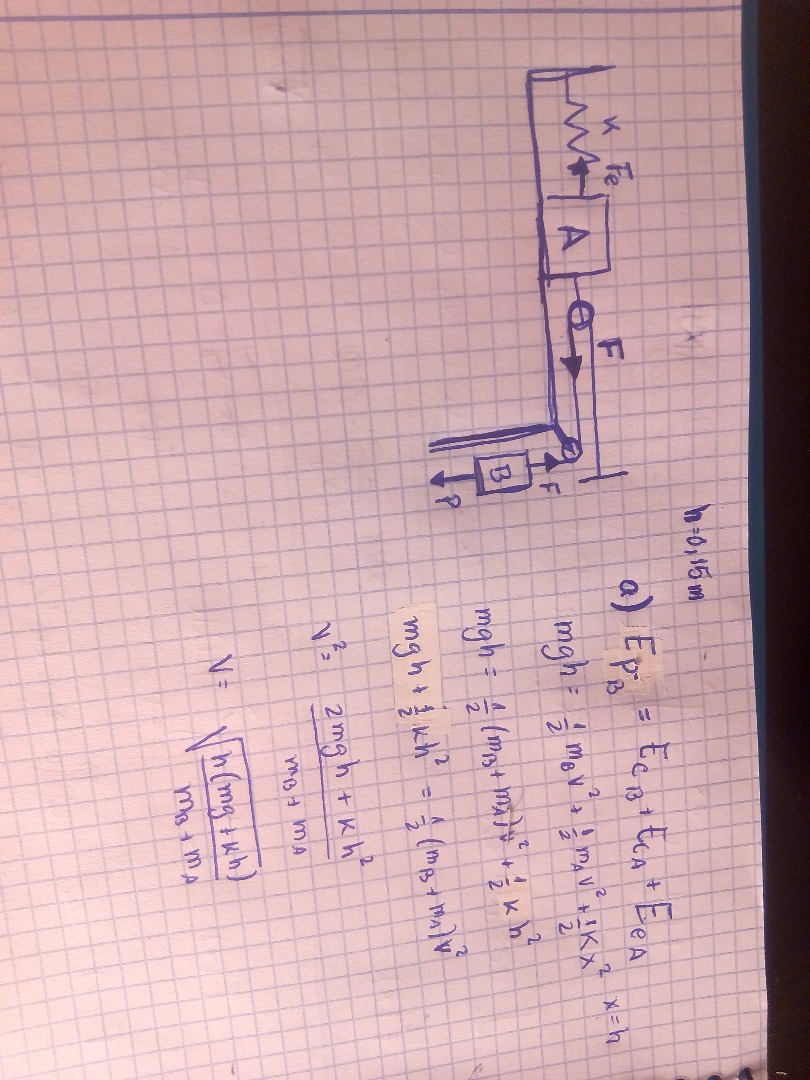 h=0,15m
K Fe A F
B F P
a) EpB = EcB + EcA + EeA
mgh = 1/2 mBv² + 1/2 mAv² + 1/2 Kx² x=h
mgh = 1/2 (mB + mA)v² + 1/2 k h²
mgh + 1/2 kh² = 1/2 (mB + mA)v²
v² = 2mgh + kh² / mB + mA
v = √h(mg+kh) / mB + mA